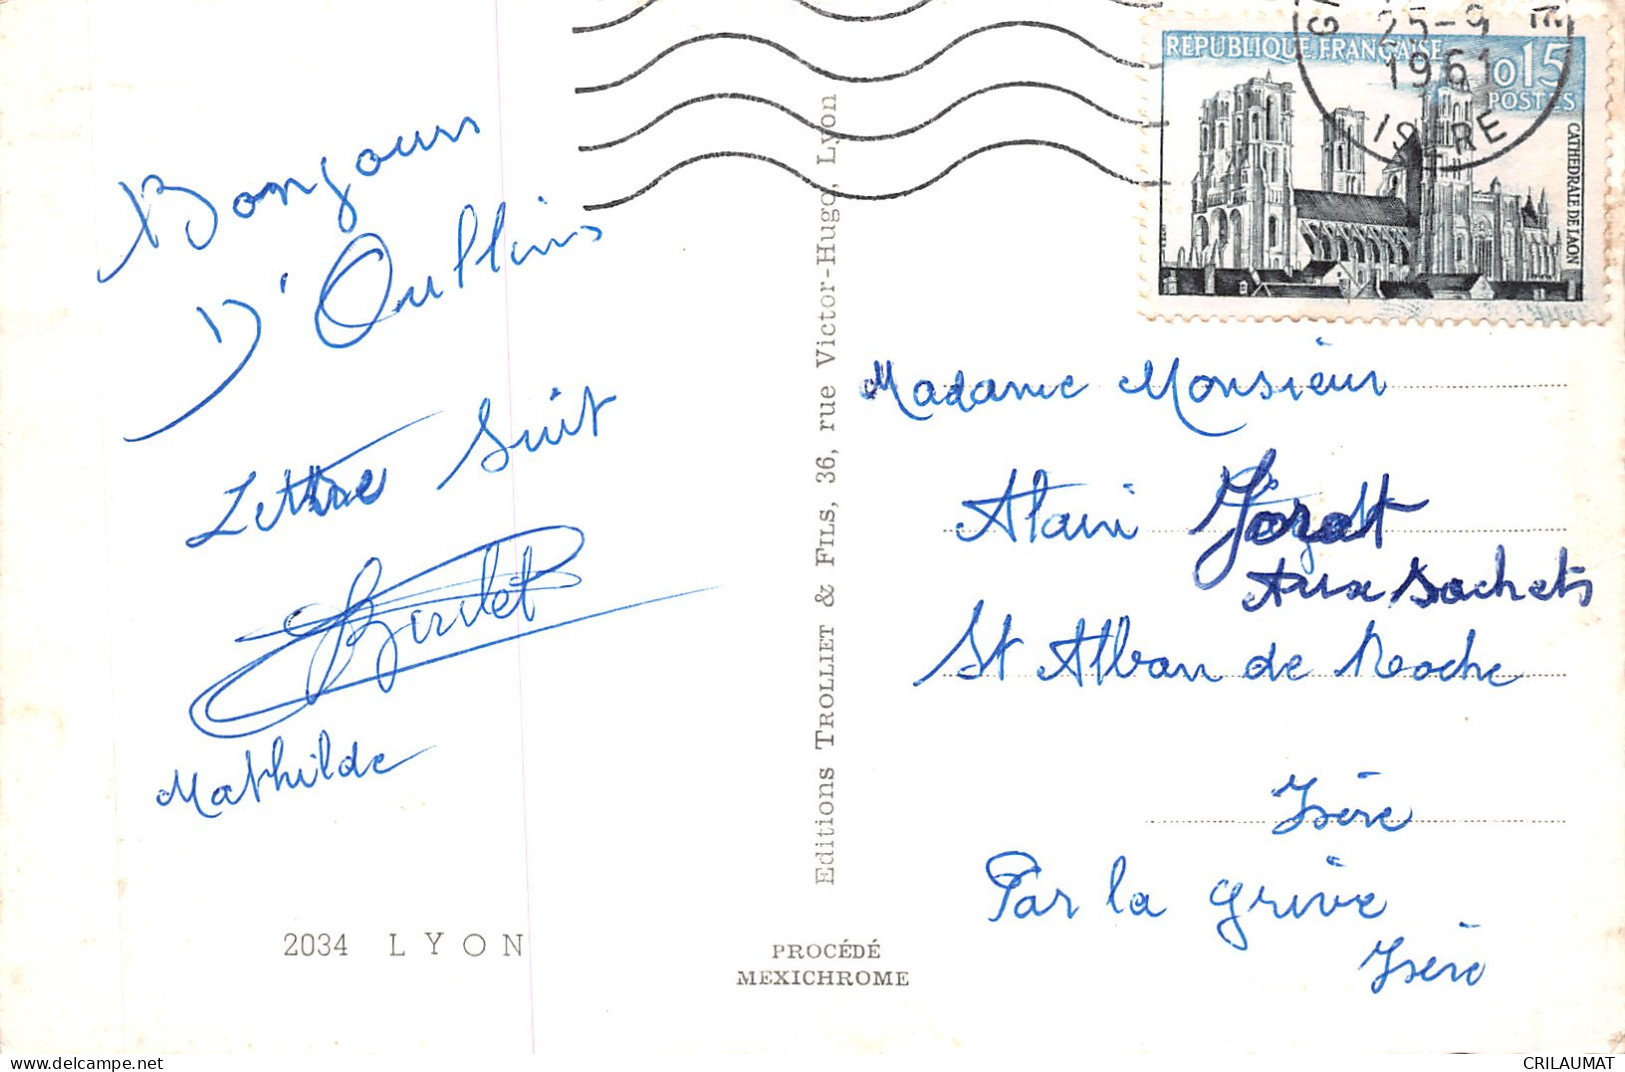 Bonjour
D'Oullins
Lettre Suit
Mathilde
2034 LYON
PROCÉDÉ
MEXICHROME
Editions TROLLIET & FILS, 36, rue Victor-Hugo, Lyon
REPUBLIQUE FRANÇAISE
0,15
POSTES
CATHEDRALE DE LAON
25-9
1961
ISERE
Madame Monsieur
Alain
Aux Sachets
St Alban de Roche
Isère
Par la Grive
Isère
www.delcampe.net
CRILAUMAT